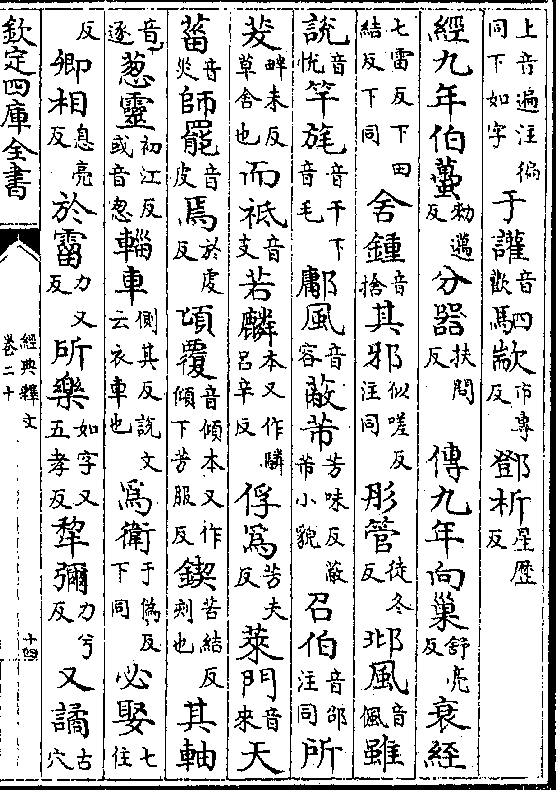 上音遍注徧同下如字 于讙音歡 駟歂市專反 鄧析星歷反
經九年伯蠆勑邁反 分器扶問反 傳九年向巢舒亮反 衰絰
七雷反下田結反下同 舍鍾音捨 其邪似嗟反注同 彤管徒冬反 邶風音佩 雖
說音悅 竿旄音干下音毛 鄘風音容 蔽芾芳味反蔽芾小貌 召伯音邵注同 所
茇畔末反草舍也 而祗音支 若麟本又作驎呂辛反 俘爲芳夫反 萊門音來 天
菑音災 師罷音皮 焉於虔反 頃覆音傾本又作傾下芳服反 鍥苦結反刻也 其軸
音逐 葱靈初江反或音怱 輜車側其反說文云衣車也 爲衛于偽反下同 必娶七住
反 卿相息亮反 於霤力又反 所樂如字又五孝反 犂彌力兮反 又譎古穴
欽定四庫全書 經典釋文 卷二十 十四